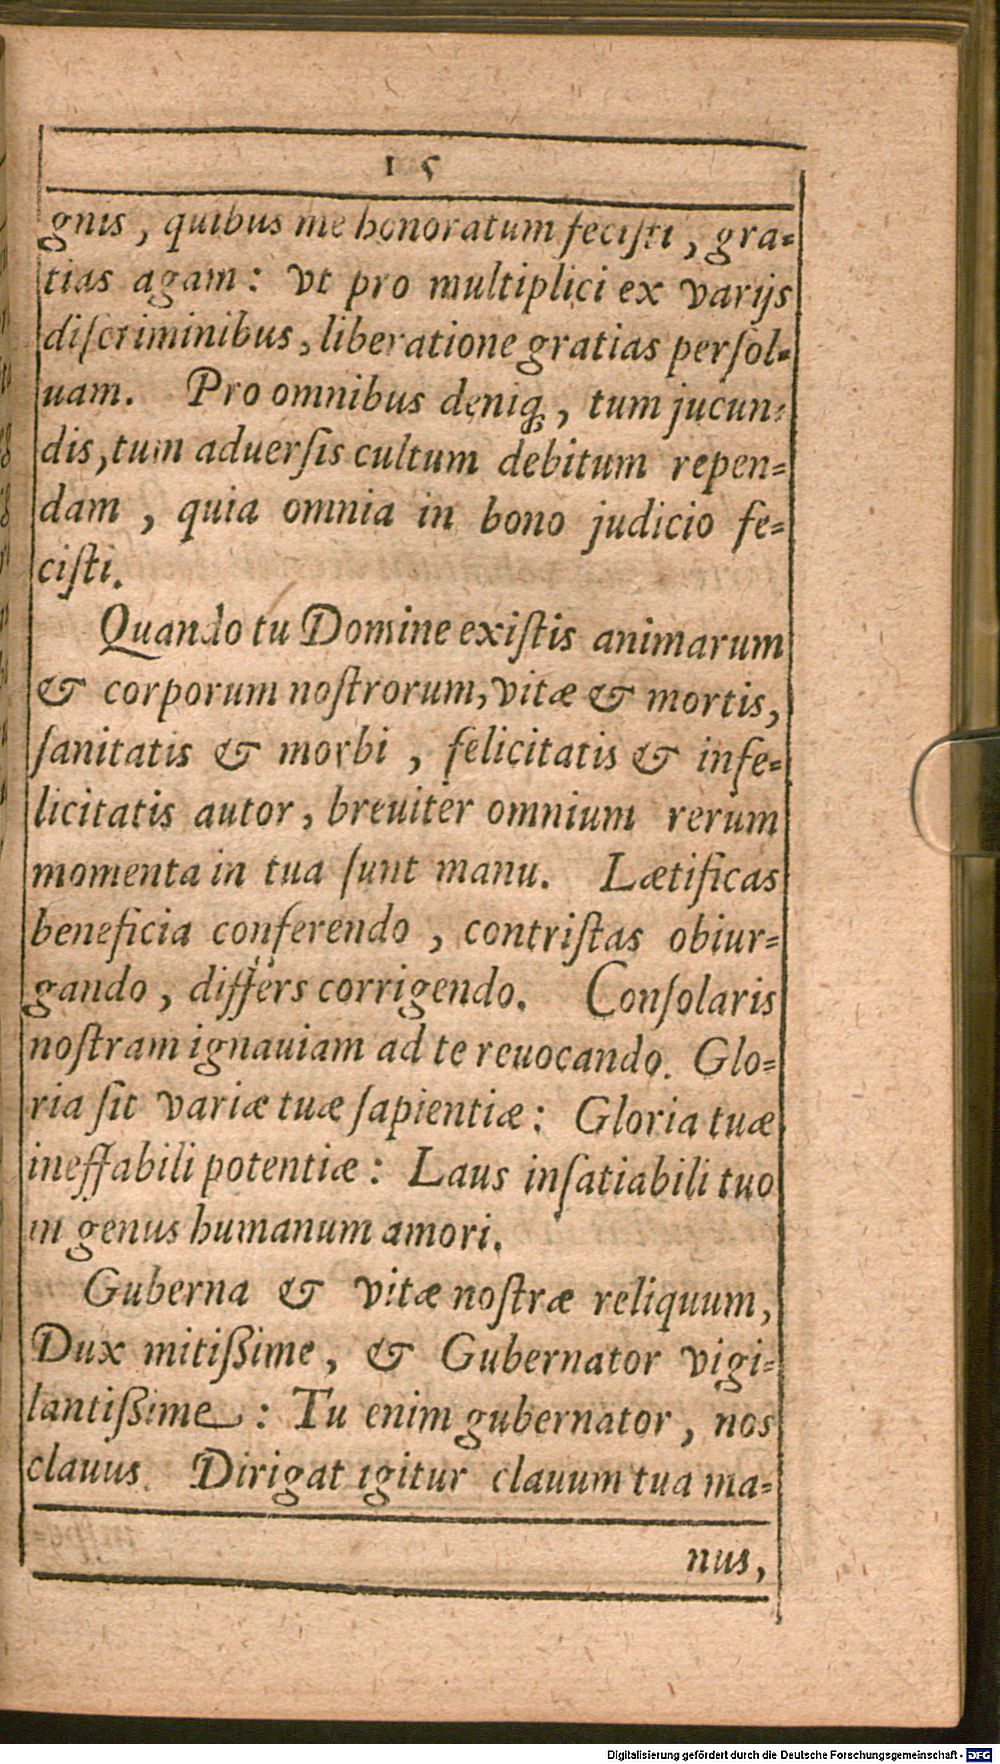 15
gnis, quibus me honoratum feciſti, gra-
tias agam: vt pro multiplici ex varijs
diſcriminibus, liberatione gratias perſol-
uam. Pro omnibus deniq́;, tum jucun-
dis, tum aduerſis cultum debitum repen-
dam, quia omnia in bono judicio fe-
ciſti.
Quando tu Domine exiſtis animarum
& corporum noſtrorum, vitæ & mortis,
ſanitatis & morbi, felicitatis & infe-
licitatis autor, breuiter omnium rerum
momenta in tua ſunt manu. Lætificas
beneficia conferendo, contriſtas obiur-
gando, differs corrigendo. Conſolaris
noſtram ignauiam ad te reuocando. Glo-
ria ſit variæ tuæ ſapientiæ: Gloria tuæ
ineffabili potentiæ: Laus inſatiabili tuo
in genus humanum amori.
Guberna & vitæ noſtræ reliquum,
Dux mitiſſime, & Gubernator vigi-
lantiſſime: Tu enim gubernator, nos
clauus. Dirigat igitur clauum tua ma-
nus,
Digitalisierung gefördert durch die Deutsche Forschungsgemeinschaft - DFG